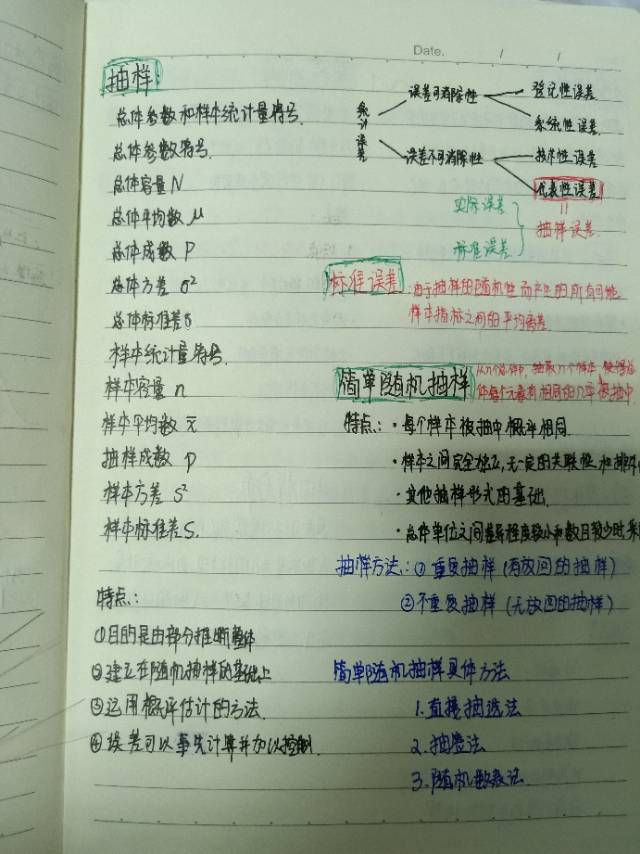 Date. / /
抽样
总体参数和样本统计量符号.
总体参数符号.
总体容量 N
总体平均数 μ
总体成数 P
总体方差 σ²
总体标准差σ
样本统计量符号.
样本容量 n
样本平均数 x̄
抽样成数 p
样本方差 S²
样本标准差S.
特点:
①目的是由部分推断整体
②建立在随机抽样的基础上
③运用概率估计的方法.
④误差可以事先计算并加以控制.
统计误差
误差可消除性
登记性误差
系统性误差
误差不可消除性
技术性误差
代表性误差
实际误差
标准误差
=
抽样误差.
标准误差:由于抽样的随机性而产生的所有可能
样本指标之间的平均离差.
简单随机抽样
从N个总体中,抽取n个样本,使得总
体每个元素有相同的几率被抽中
特点:·每个样本被抽中概率相同
·样本之间完全独立,无一定的关联性和排
·其他抽样形式的基础.
·总体单位之间差异程度较小和数目较少时采
抽样方法:①重复抽样(有放回的抽样)
②不重复抽样(无放回的抽样)
简单随机抽样具体方法
1.直接抽选法
2.抽签法
3.随机数表法.